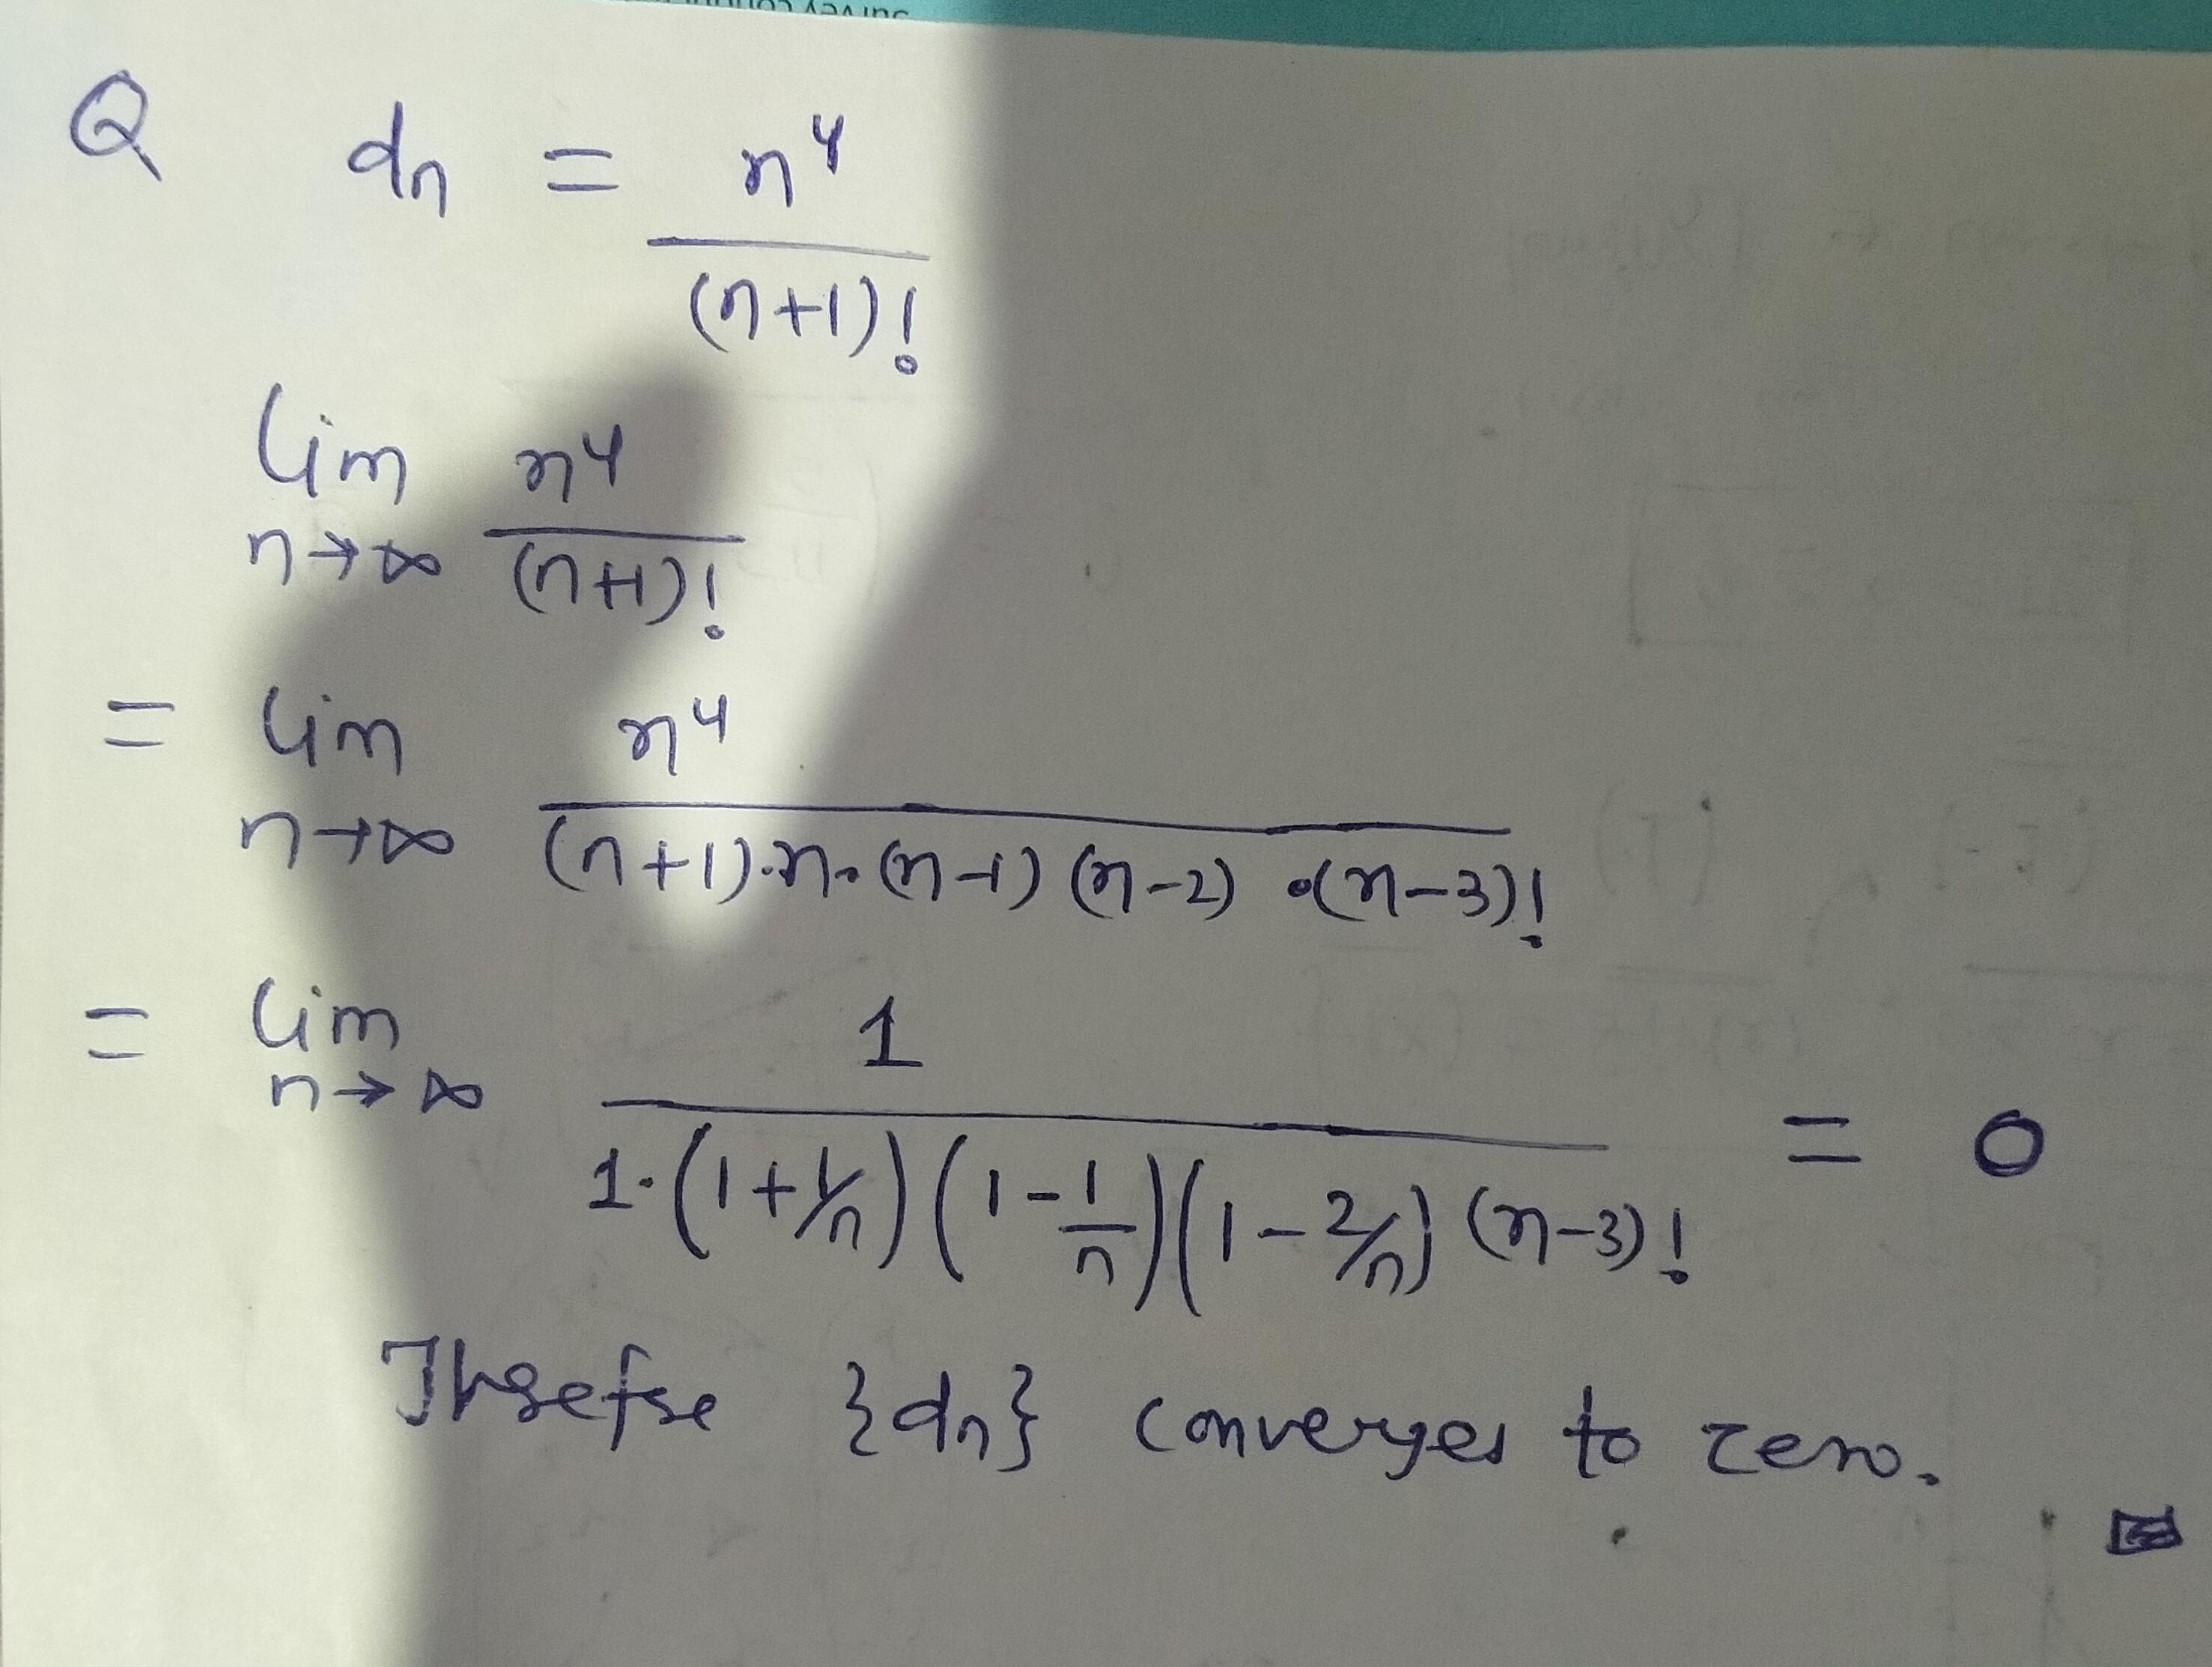 Q dn = n⁴ / (n+1)!
lim n→∞ n⁴ / (n+1)!
= lim n→∞ n⁴ / (n+1)·n·(n-1)(n-2)·(n-3)!
= lim n→∞ 1 / 1·(1+1/n)(1-1/n)(1-2/n)(n-3)! = 0
Therefore {dn} converges to zero.